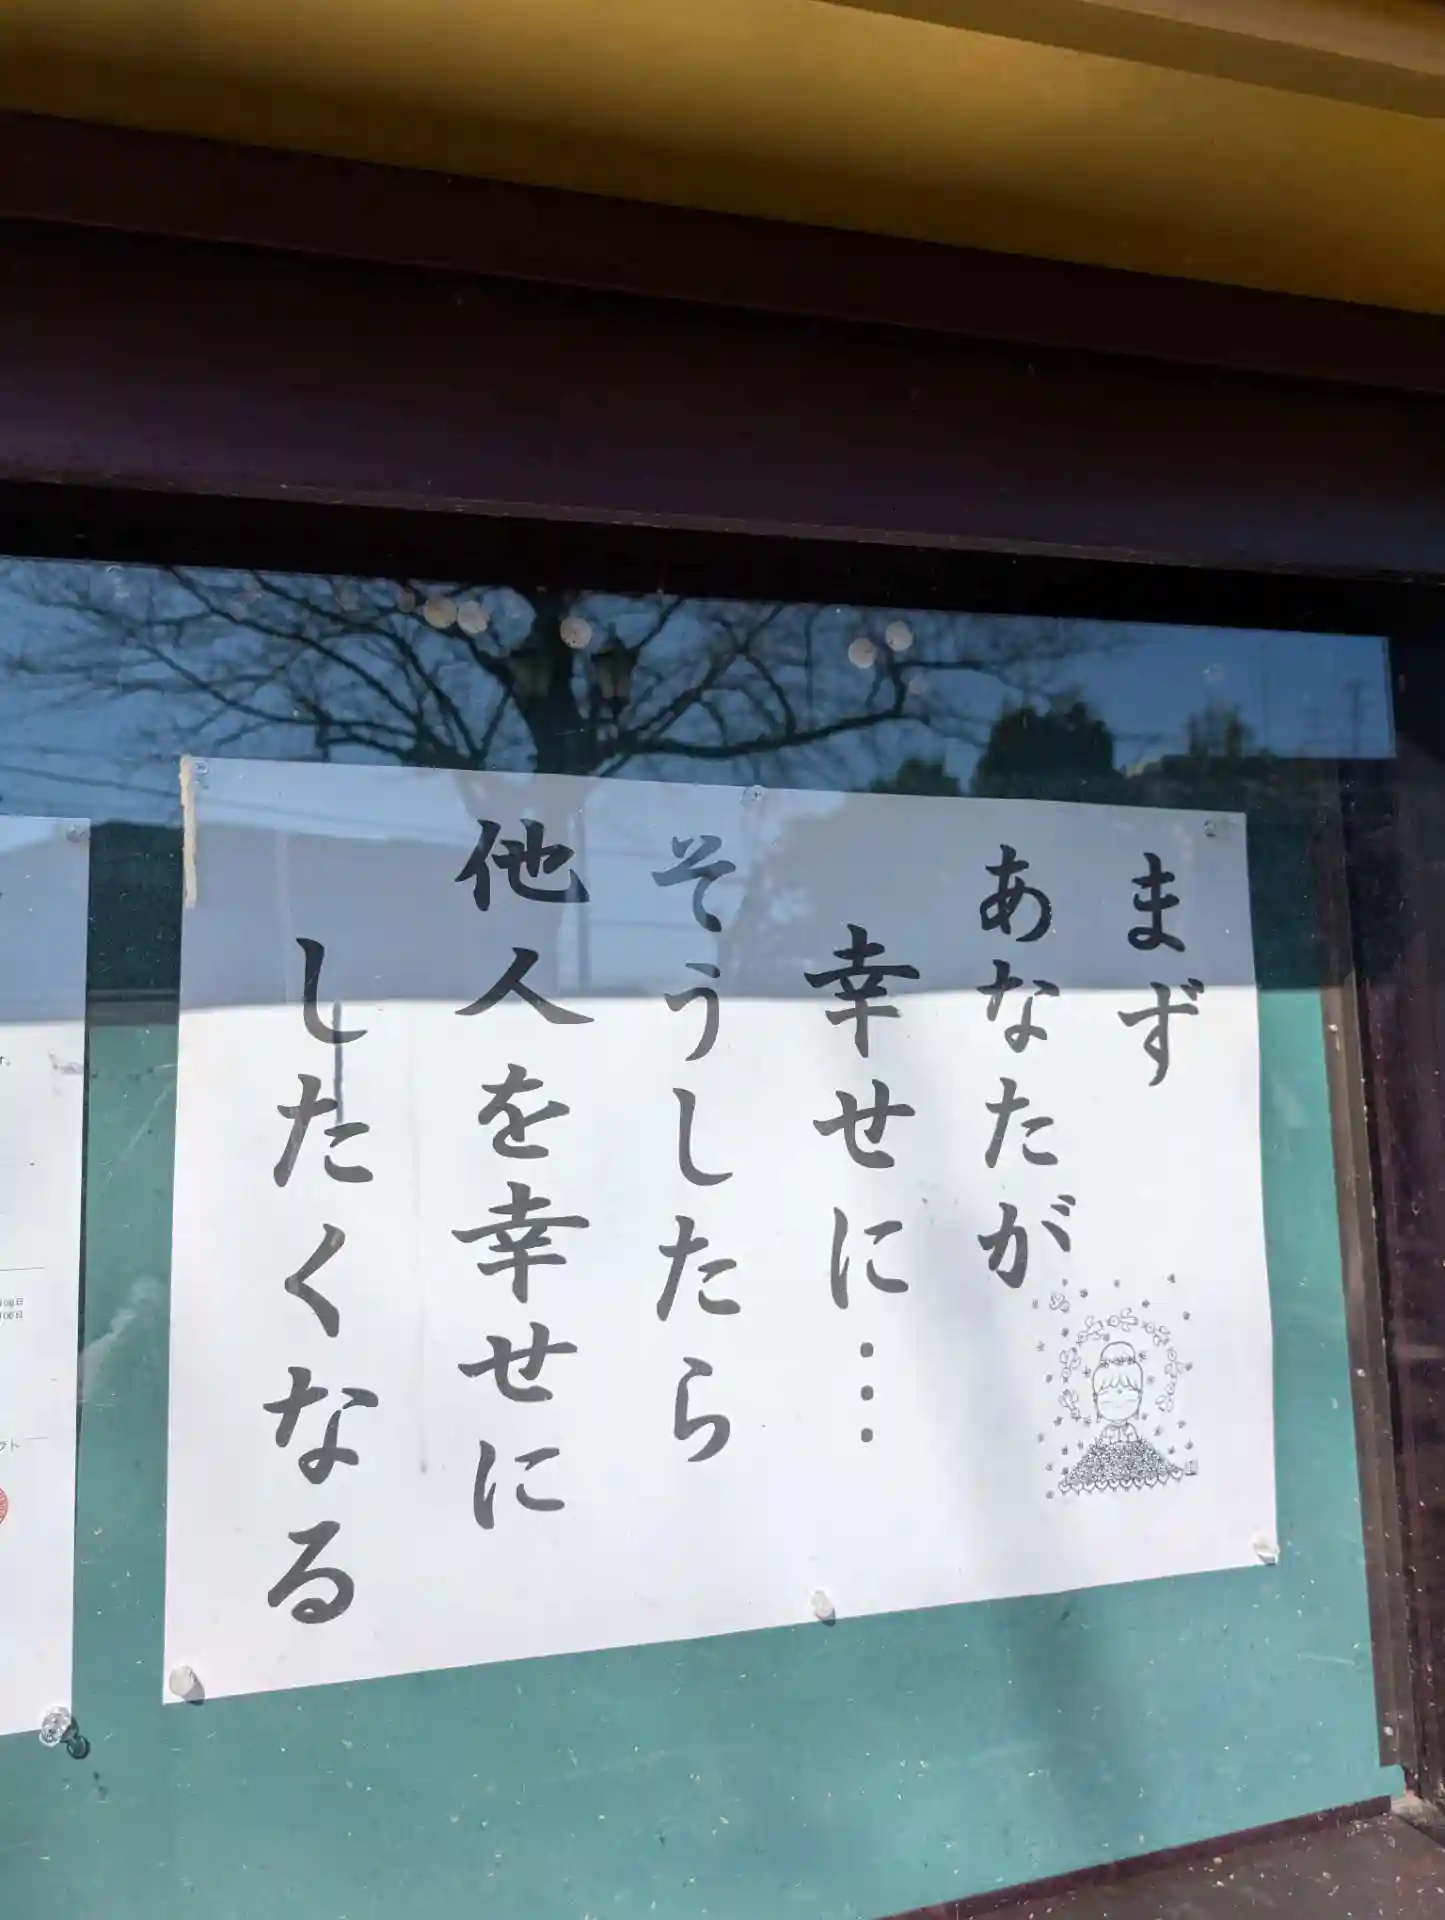 まず
あなたが
幸せに……
そうしたら
他人を幸せに
したくなる